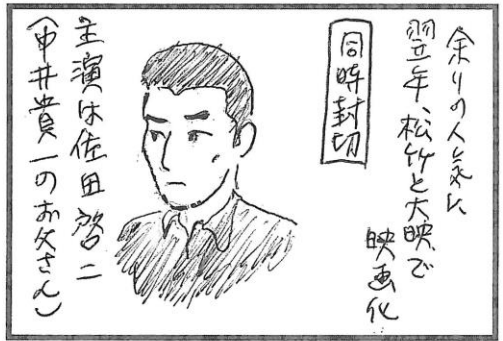 余りの人気に
翌年、松竹と大映で
映画化
同時封切
主演は佐田啓二
（中井貴一のお父さん）